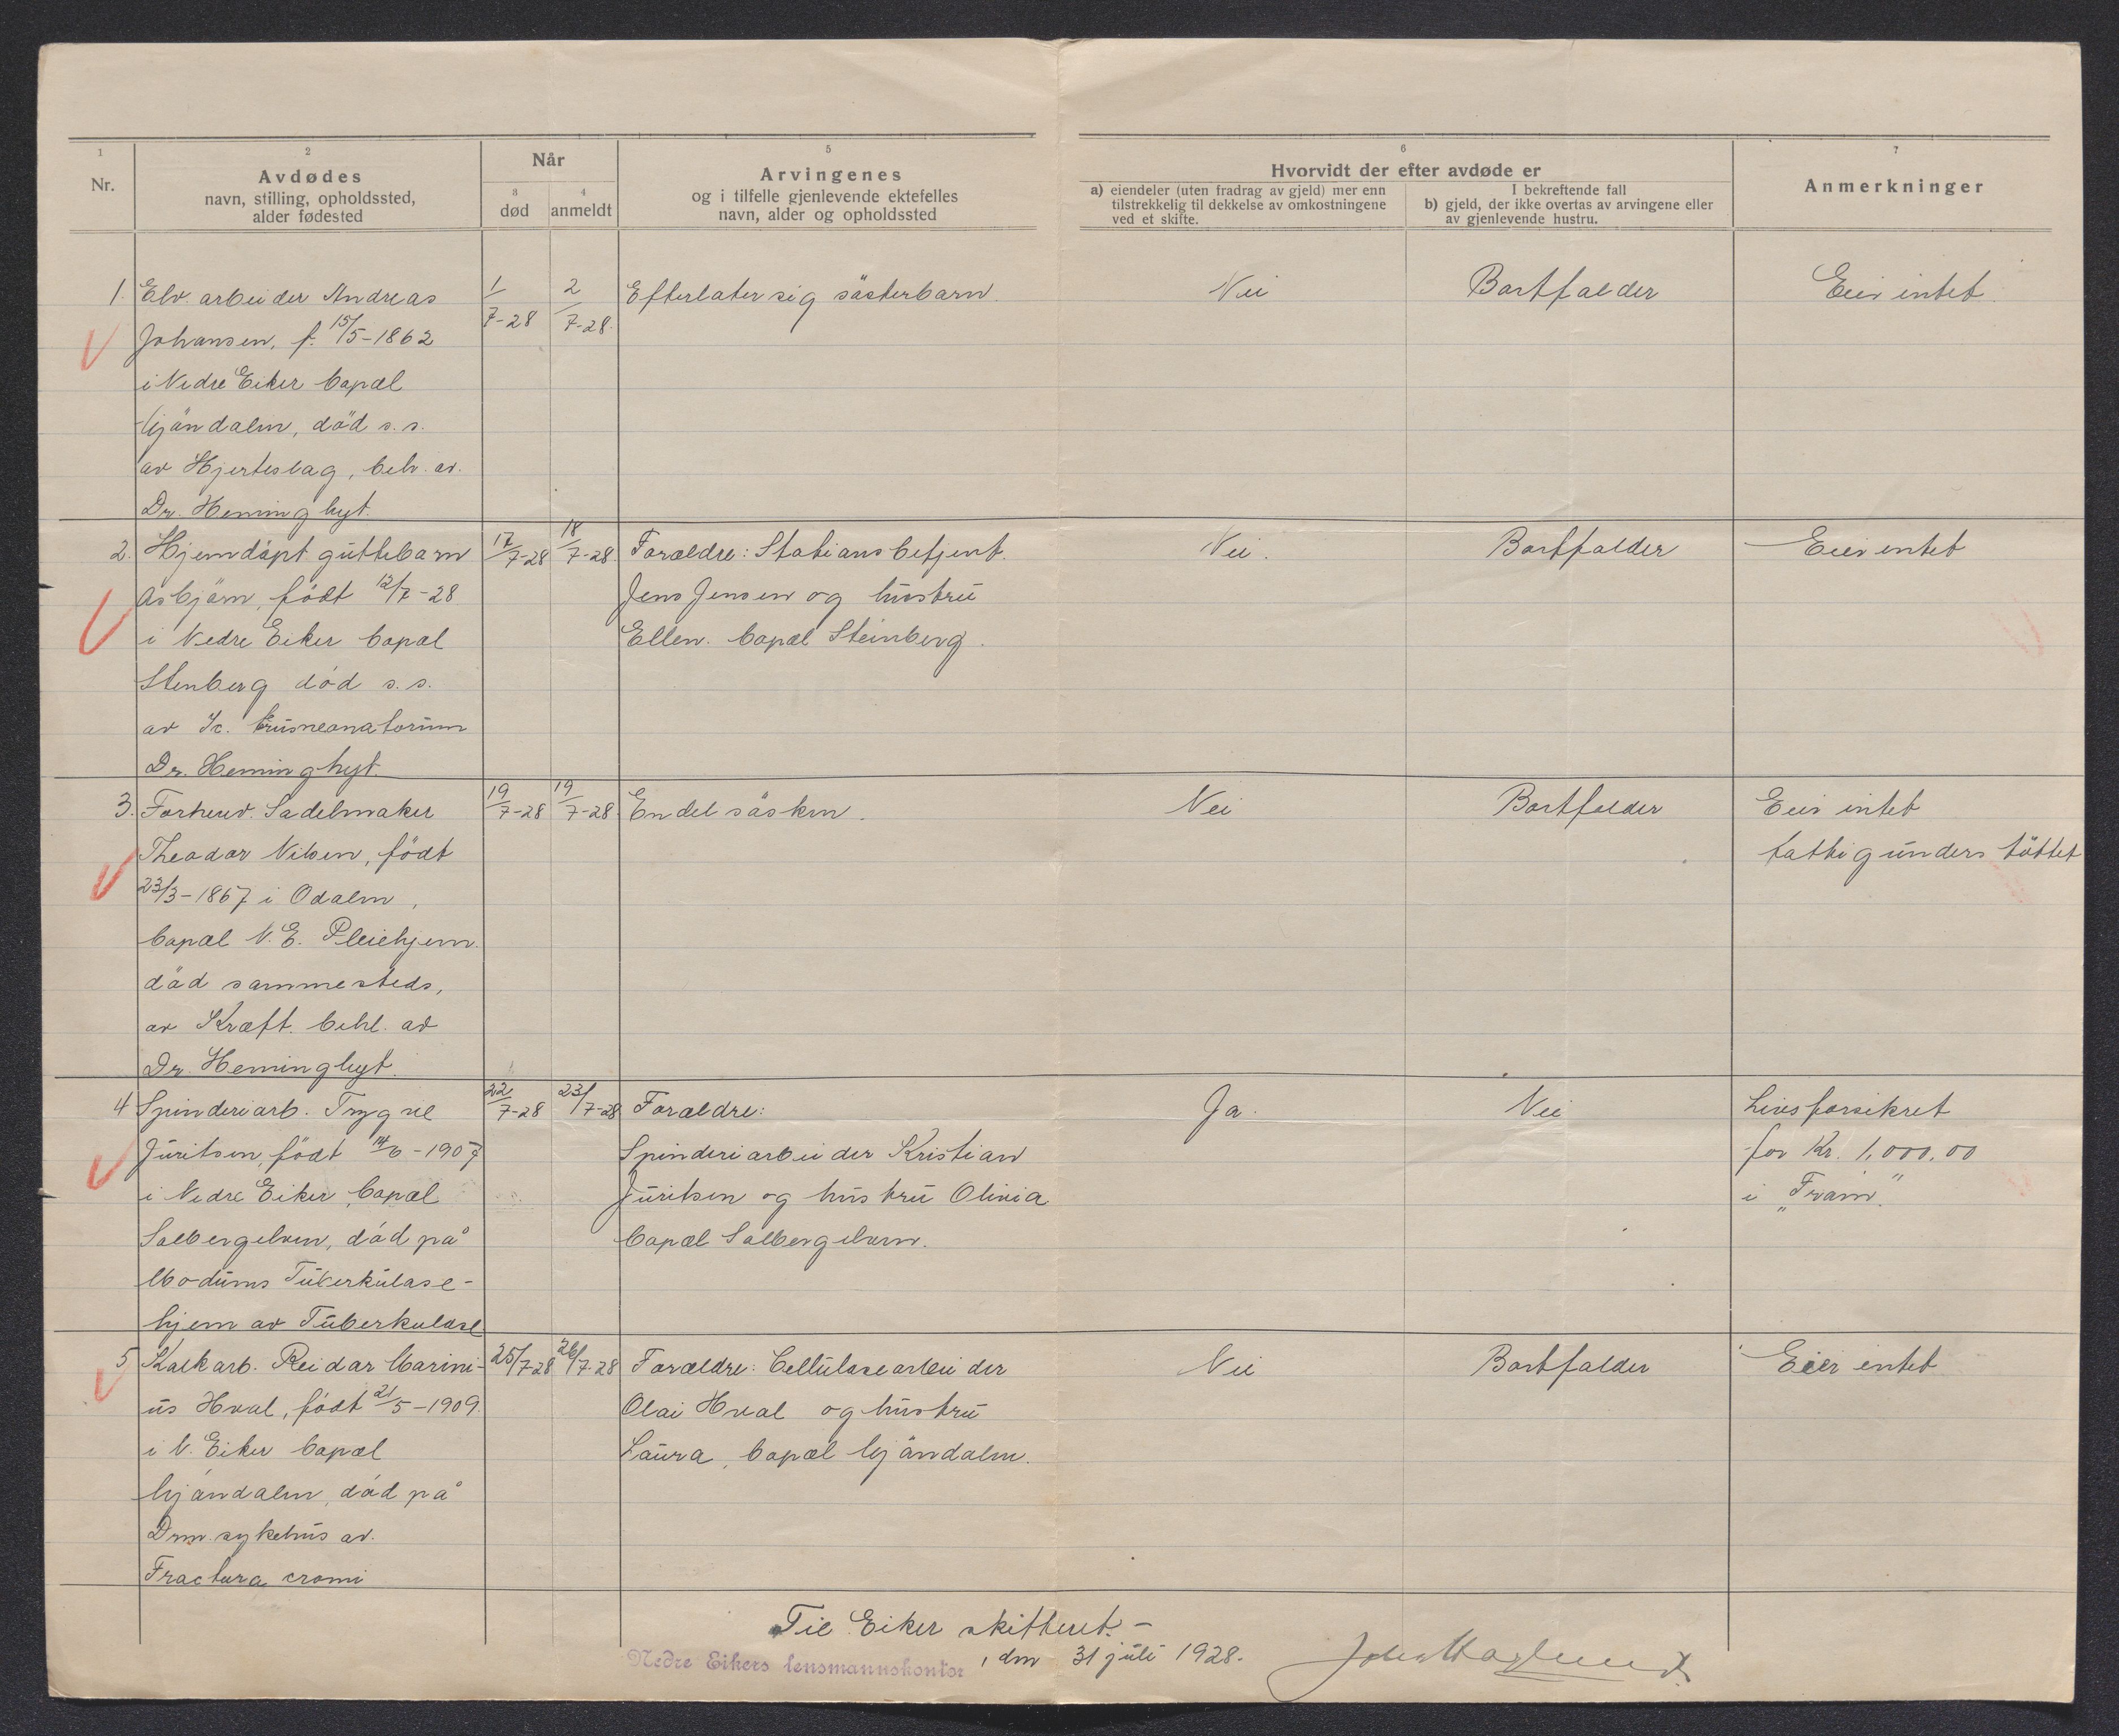 1 2 3 4 5 6 7
Nr.
Avdødes
navn, stilling, opholdssted,
alder fødested
Når
død anmeldt
Arvingenes
og i tilfelle gjenlevende ektefelles
navn, alder og opholdssted
Hvorvidt der efter avdøde er
a) eiendeler (uten fradrag av gjeld) mer enn
tilstrekkelig til dekkelse av omkostningene
ved et skifte.
I bekreftende fall
b) gjeld, der ikke overtas av arvingene eller
av gjenlevende hustru.
Anmerkninger
1. Elv. arbeider Andreas
Johansen, f. 15/5-1862
i Nedre Eiker bopæl
Mjöndalen, död s.s.
av Hjerteslag, beh. av.
Dr. Heminghyt.
1/7-28 2/7-28.
Efterlater sig södsterbarn.
Nei
Bortfalder
Eier intet.
2. Hjemdöpt guttebarn
Asbjörn, födt 12/7-28
i Nedre Eiker bopæl
Stenberg död s.s.
av Ic. trusneonatorum
Dr. Heminghyt.
17/7-28 18/7-28.
Forældre: Stationsbetjent.
Jens Jensen og hustru
Ellen. bopæl Steinberg.
Nei.
Bortfalder
Eier intet
3. Forhenv. Sadelmaker
Theodor Nilsen, födt
23/3-1867 i Odalen,
bopæl N.E. Pleiehjem.
död sammesteds,
av Kræft. behl. av
Dr. Heminghyt.
19/7-28 19/7-28
En del sösken.
Nei
Bortfalder
Eier intet
fattigunderstöttet
4 Spinderiarb. Trygve
Juritsen, födt 14/6-1907
i Nedre Eiker, bopæl
Solbergelven, död på
Modums Tuberkulose-
hjem av Tuberkulose
22/7-28 23/7-28
Forældre:
Spinderiarbeider Kristian
Juritsen og hustru Olivia
bopæl Solbergelven.
Ja.
Nei
Livsforsikret
for Kr. 1,000,00
i „Fram".
5 Kalkarb. Reidar Marini-
us Hval, födt 21/5-1909.
i N. Eiker bopæl
Mjöndalen, död på
Drm. sykehus av.
Fractura cranii
25/7-28 26/7-28
Forældre: Cellulosearbeider
Olai Hval og hustru
Laura, bopæl Mjöndalen.
Nei
Bortfalder
Eier intet
Til Eiker skifteret.-
Nedre Eikers lensmannskontor, den 31 juli 1928.